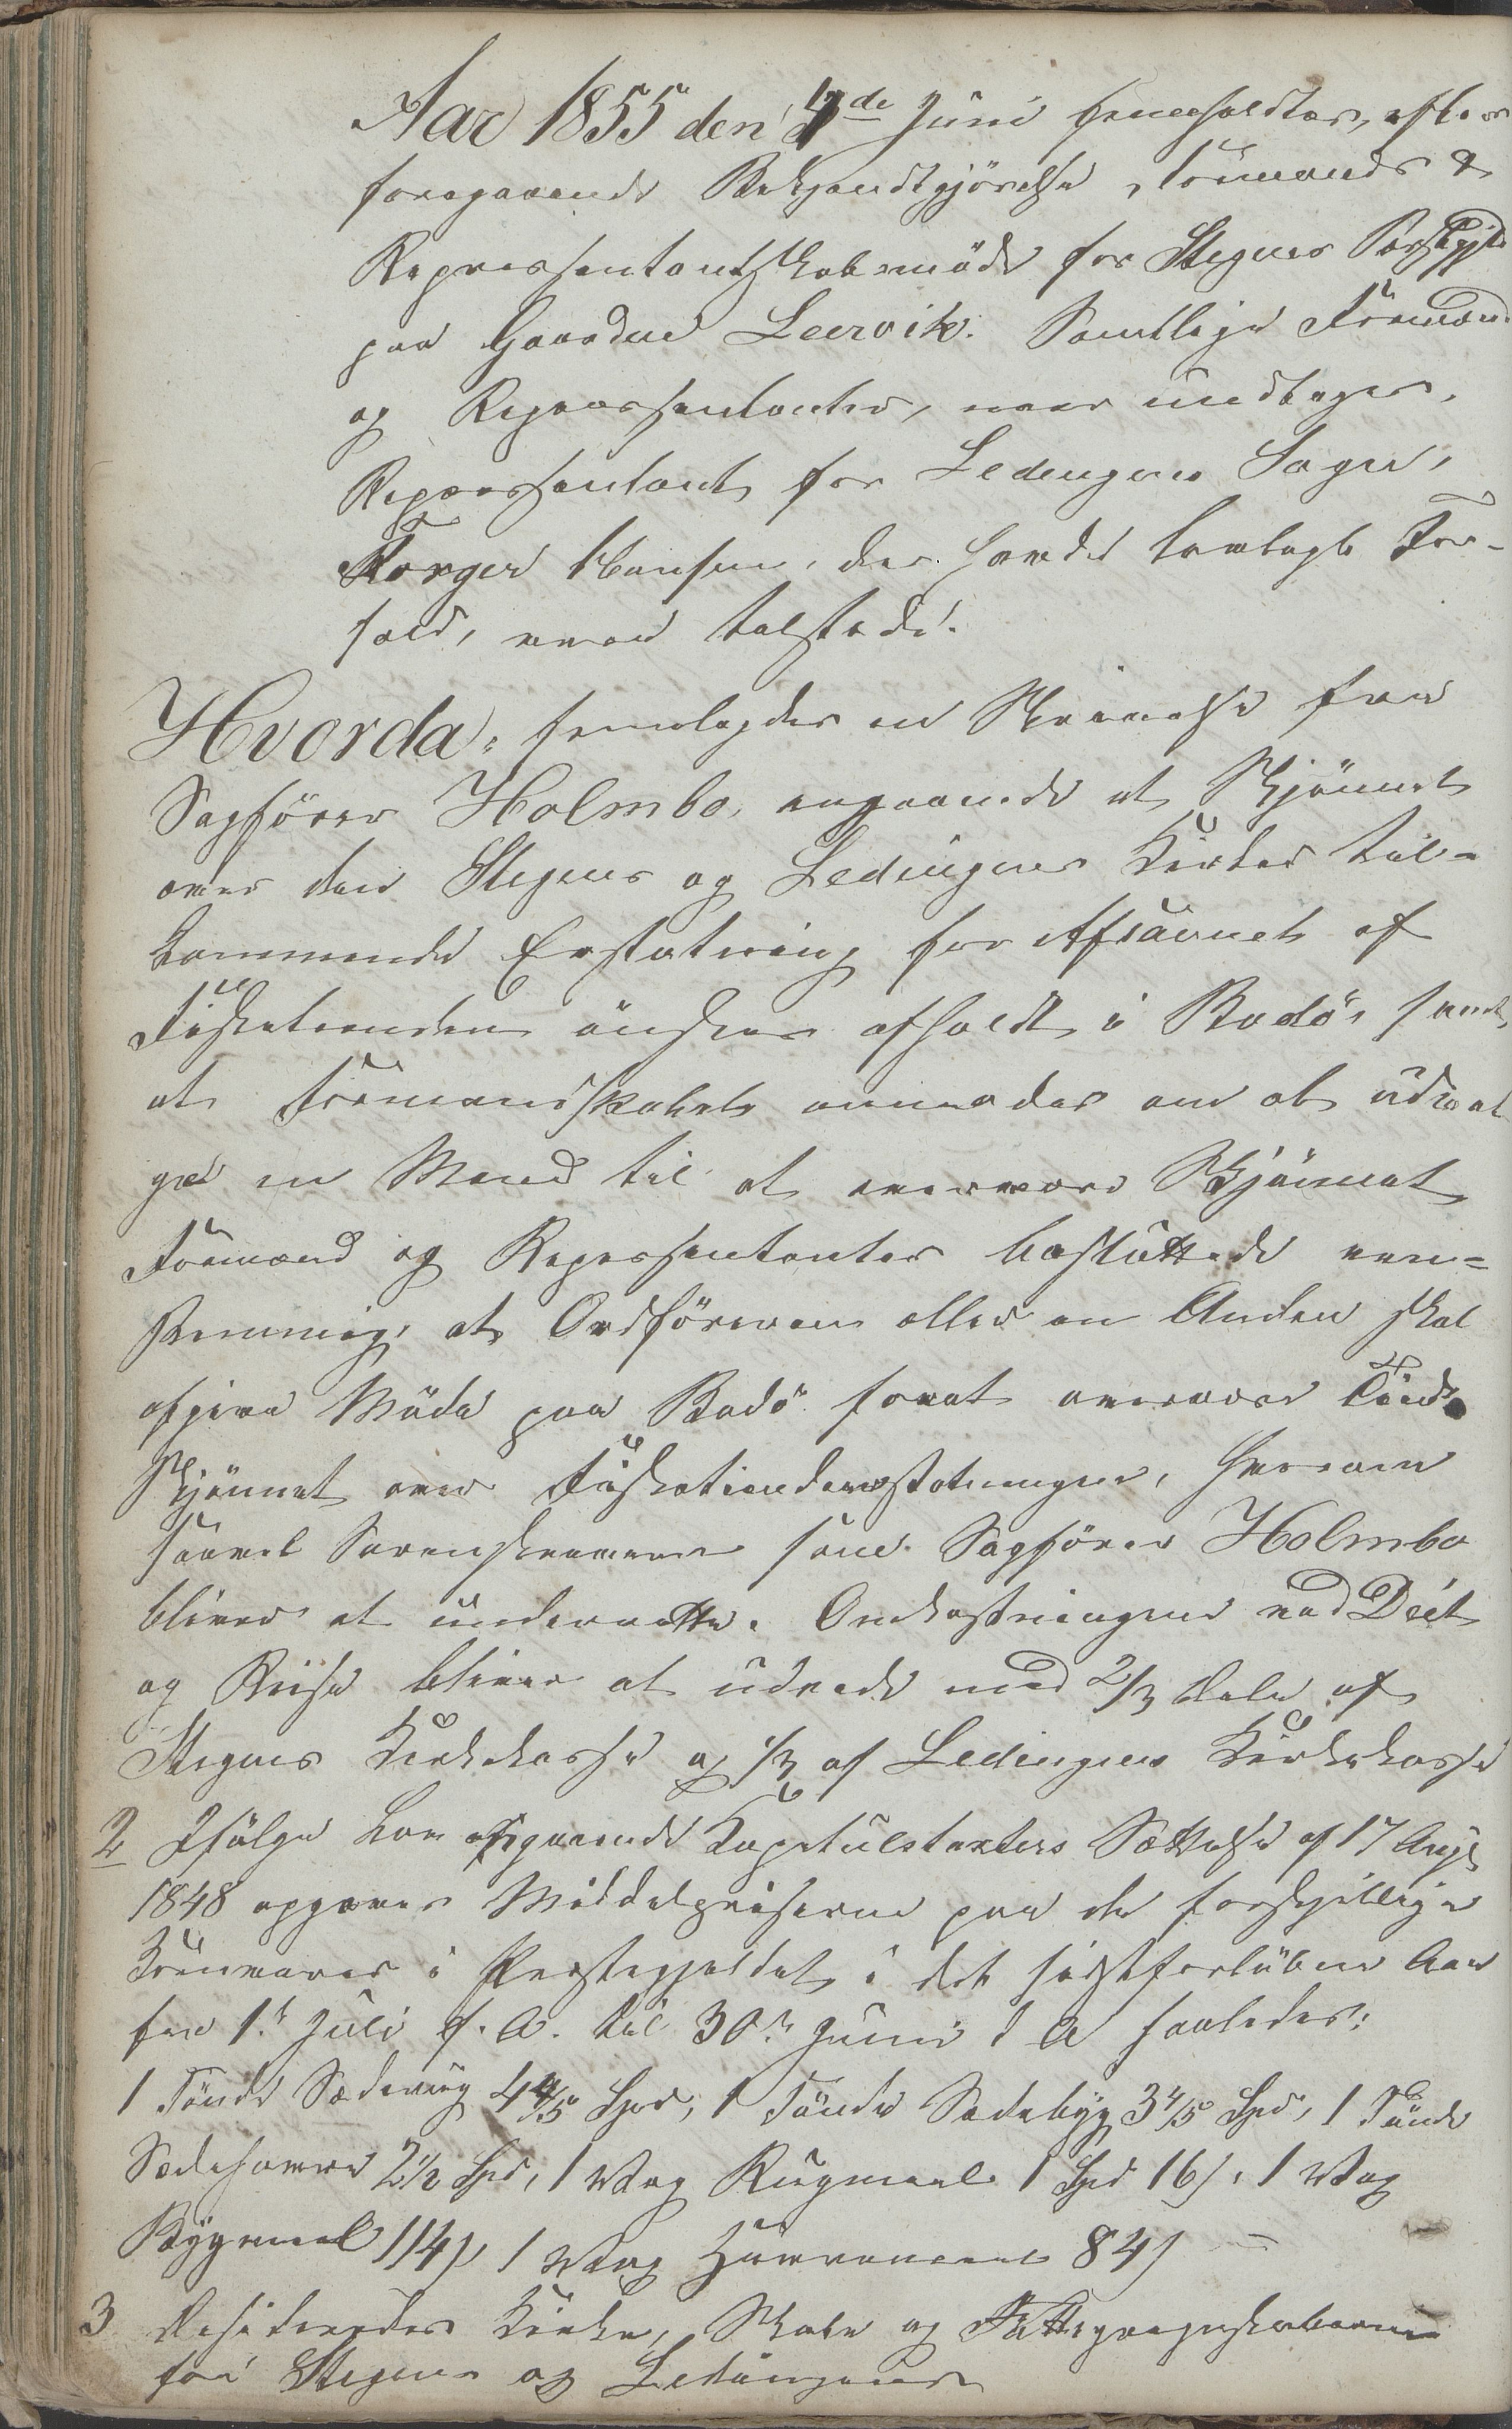 Aar 1855 den de Juni fremholdtes, efter
foregaaende Bekjendtgjörelse, Formands &
Repræsentantskabsmöde for Stegens Præstegjeld
paa Gaarden Leervik. Samtlige Formænd
og Repræsentanter, naar undtages,
Repræsentant for Ledingens Sogn,
Torger Hansen, der havde lovlagt For-
fald, vare tilstede.
Hvorda: fremlagdes en Skrivelse fra
Sagförer Holmbo, angaaende at Skjönnet
over den Stegens og Ledingens Kirker til-
kommende Erstatning for Afsavnet af
Fisketienden önskes afholdt i Bodö, samt
at Formandskabet anmodes om at udvæl
ge en Mand til at overvære Skjönnet
Formænd og Repræsentanter besluttede een-
stemmig, at Ordföreren eller en Anden skal
afgive Möde paa Bodö forat overvære
Skjönnet over Fisketiendeerstatningen, hvorom
saavel Sorenskriveren som Sagförer Holmbo
bliver at underrette. Omkostningerne ved Diet
og Reise bliver at udrede med 2/3 Dele af
Stegens Kirkekasse og 1/3 af Ledingens Kirkekasse
2 Ifölge Lov angaaende Kapitelstaxters Sættelse af 17 Aug
1848 opgaves Middelpriserne paa de forskjellige
Kornvarer i Præstegjeldet i det sidstforlöbne Aar
fra 1ste Juli f. A. til 30te Juni d A saaledes:
1 Tönde Sæderug 4 4/5 Spd, 1 Tönde Sædebyg 3 4/5 Spd, 1 Tönde
Sædehavre 2 1/2 Spd, 1 Vog Rugmeel 1 Spd 16 s, 1 Vog
Bygmeel 114 s, 1 Vog Havremeel 84 s =
3 Desideredes Kirke, Skole og Fattigregnskaberne
for Stegen og Ledingen